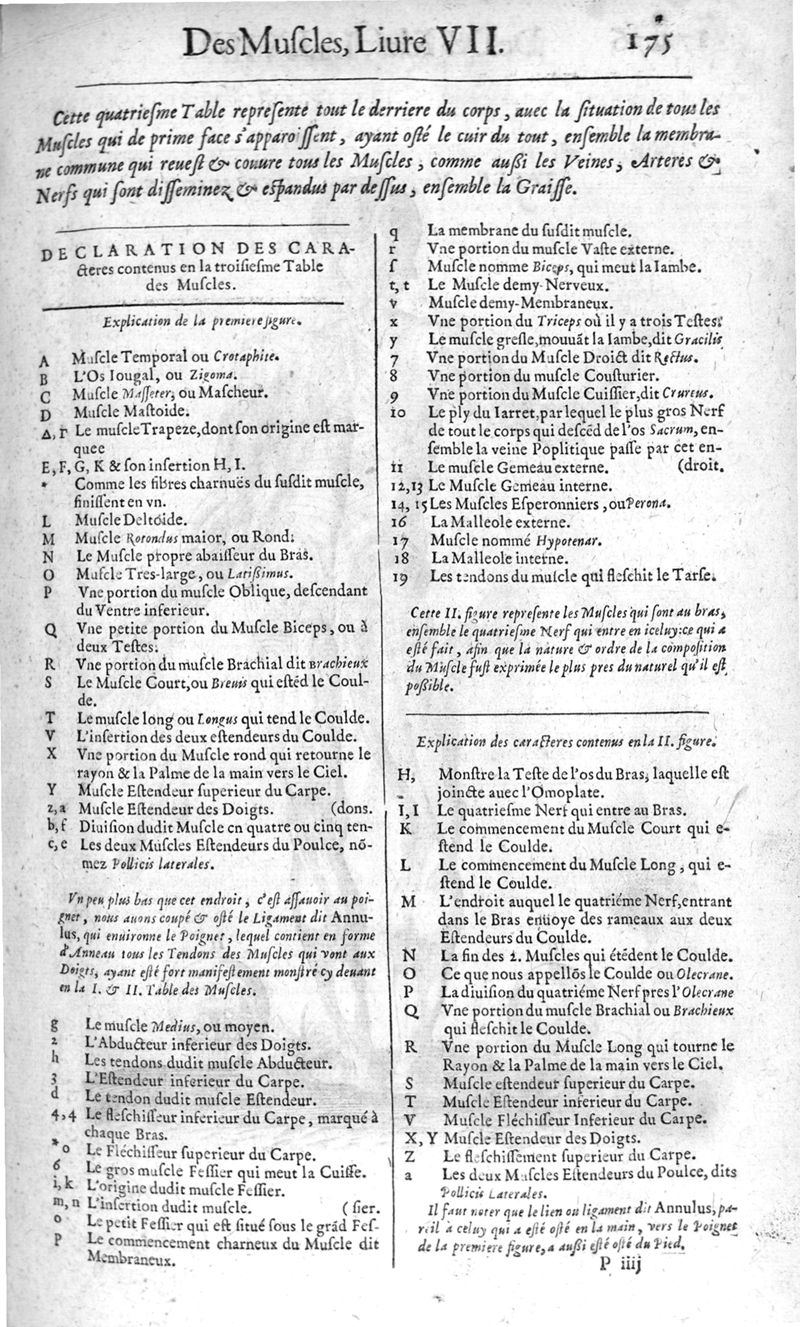 Des Muſcles, Liure VII. 175
Cette quatrieſme Table repreſente tout le derriere du corps, auec la ſituation de tous les
Muſcles qui de prime face s'apparoiſſent, ayant oſté le cuir du tout, enſemble la membra-
ne commune qui reueſt & couure tous les Muſcles, comme außi les Veines, Arteres &
Nerfs qui ſont diſſeminez & eſpandus par deſſus, enſemble la Graiſſe.
DECLARATION DES CARA-
cteres contenus en la troiſieſme Table
des Muſcles.
Explication de la premiere figure.
A Muſcle Temporal ou Crotaphite.
B L'Os Iougal, ou Zigoma.
C Muſcle Maſſeter, ou Maſcheur.
D Muſcle Maſtoide.
Δ, Γ Le muſcle Trapeze, dont ſon origine eſt mar-
quee
E, F, G, K & ſon inſertion H, I.
* Comme les fibres charnuës du ſuſdit muſcle,
finiſſent en vn.
L Muſcle Deltoide.
M Muſcle Rotondus maior, ou Rond.
N Le Muſcle propre abaiſſeur du Bras.
O Muſcle Tres-large, ou Latißimus.
P Vne portion du muſcle Oblique, deſcendant
du Ventre inferieur.
Q Vne petite portion du Muſcle Biceps, ou à
deux Teſtes.
R Vne portion du muſcle Brachial dit Brachieux
S Le Muſcle Court, ou Breuis qui eſtẽd le Coul-
de.
T Le muſcle long ou Longus qui tend le Coulde.
V L'inſertion des deux eſtendeurs du Coulde.
X Vne portion du Muſcle rond qui retourne le
rayon & la Palme de la main vers le Ciel.
Y Muſcle Eſtendeur ſuperieur du Carpe.
z, a Muſcle Eſtendeur des Doigts. (dons.
b, f Diuiſion dudit Muſcle en quatre ou cinq ten-
c, e Les deux Muſcles Eſtendeurs du Poulce, nõ-
mez Pollicis laterales.
Vn peu plus bas que cet endroit, c'eſt aſſauoir au poi-
gnet, nous auons coupé & oſté le Ligament dit Annu-
lus, qui enuironne le Poignet, lequel contient en forme
d'Anneau tous les Tendons des Muſcles qui vont aux
Doigts, ayant eſté fort manifeſtement monſtré cy deuant
en la I. & II. Table des Muſcles.
g Le muſcle Medius, ou moyen.
2 L'Abducteur inferieur des Doigts.
h Les tendons dudit muſcle Abducteur.
3 L'Eſtendeur inferieur du Carpe.
d Le tendon dudit muſcle Eſtendeur.
4, 4 Le fleſchiſſeur inferieur du Carpe, marqué à
chaque Bras.
* o Le Fléchiſſeur ſuperieur du Carpe.
6 Le gros muſcle Feſſier qui meut la Cuiſſe.
i, k L'origine dudit muſcle Feſſier.
m, n L'inſertion dudit muſcle. (ſier.
o Le petit Feſſier qui eſt ſitué ſous le grãd Feſ-
p Le commencement charneux du Muſcle dit
Membraneux.
q La membrane du ſuſdit muſcle.
r Vne portion du muſcle Vaſte externe.
ſ Muſcle nomme Biceps, qui meut la Iambe.
t, t Le Muſcle demy-Nerveux.
v Muſcle demy-Membraneux.
x Vne portion du Triceps où il y a trois Teſtes.
y Le muſcle greſle, mouuãt la Iambe, dit Gracilis
7 Vne portion du Muſcle Droict dit Rectus.
8 Vne portion du muſcle Couſturier.
9 Vne portion du Muſcle Cuiſſier, dit Crureus.
10 Le ply du Iarret, par lequel le plus gros Nerf
de tout le corps qui deſcẽd de l'os Sacrum, en-
ſemble la veine Poplitique paſſe par cet en-
11 Le muſcle Gemeau externe. (droit.
12, 13 Le Muſcle Gemeau interne.
14, 15 Les Muſcles Eſperonniers, ou Perona.
16 La Malleole externe.
17 Muſcle nommé Hypotenar.
18 La Malleole interne.
19 Les tendons du muſcle qui fleſchit le Tarſe.
Cette II. figure repreſente les Muſcles qui ſont au bras,
enſemble le quatrieſme Nerf qui entre en iceluy: ce qui a
eſté fait, afin que la nature & ordre de la compoſition
du Muſcle fuſt exprimée le plus pres du naturel qu'il eſt
poßible.
Explication des caracteres contenus en la II. figure.
H, Monſtre la Teſte de l'os du Bras, laquelle eſt
joincte auec l'Omoplate.
I, I Le quatrieſme Nerf qui entre au Bras.
K Le commencement du Muſcle Court qui e-
ſtend le Coulde.
L Le commencement du Muſcle Long, qui e-
ſtend le Coulde.
M L'endroit auquel le quatriéme Nerf, entrant
dans le Bras enuoye des rameaux aux deux
Eſtendeurs du Coulde.
N La fin des 2. Muſcles qui étẽdent le Coulde.
O Ce que nous appellõs le Coulde ou Olecrane.
P La diuiſion du quatriéme Nerf pres l'Olecrane
Q Vne portion du muſcle Brachial ou Brachieux
qui fleſchit le Coulde.
R Vne portion du Muſcle Long qui tourne le
Rayon & la Palme de la main vers le Ciel.
S Muſcle eſtendeur ſuperieur du Carpe.
T Muſcle Eſtendeur inferieur du Carpe.
V Muſcle Fléchiſſeur Inferieur du Carpe.
X, Y Muſcle Eſtendeur des Doigts.
Z Le fleſchiſſement ſuperieur du Carpe.
a Les deux Muſcles Eſtendeurs du Poulce, dits
Pollicis Laterales.
Il faut noter que le lien ou ligament dit Annulus, pa-
reil à celuy qui a eſté oſté en la main, vers le Poignet
de la premiere figure, a außi eſté oſté du Pied.
P iiij